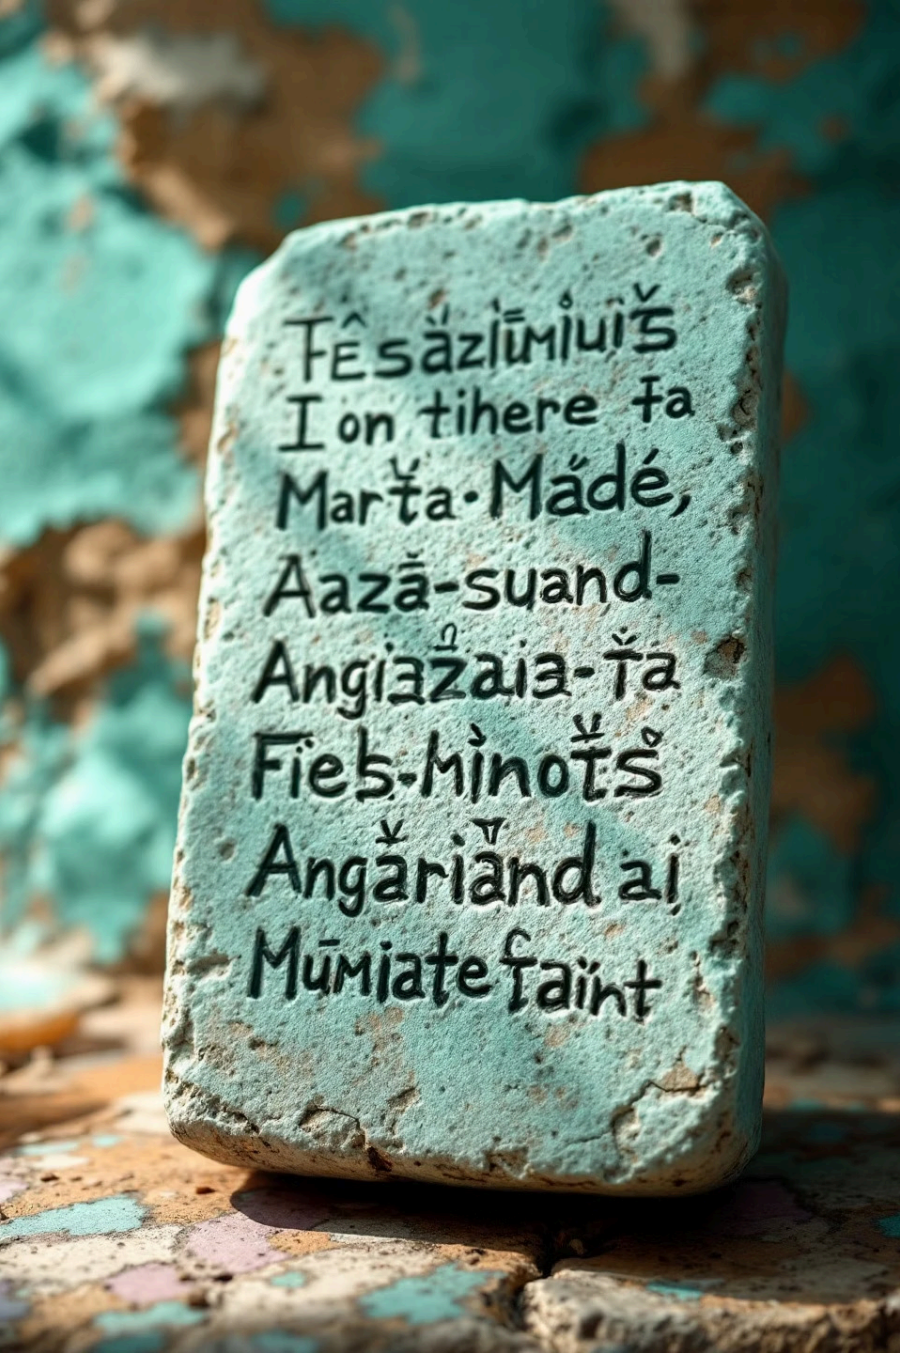 Fêsäzlūmiuìš
I on tihere ta
Marťa·Mádé,
Aază-suand-
Angiažaia-Ťa
Fïeb-mìnoťš
Angăriand ai
Mūmiate faïnt